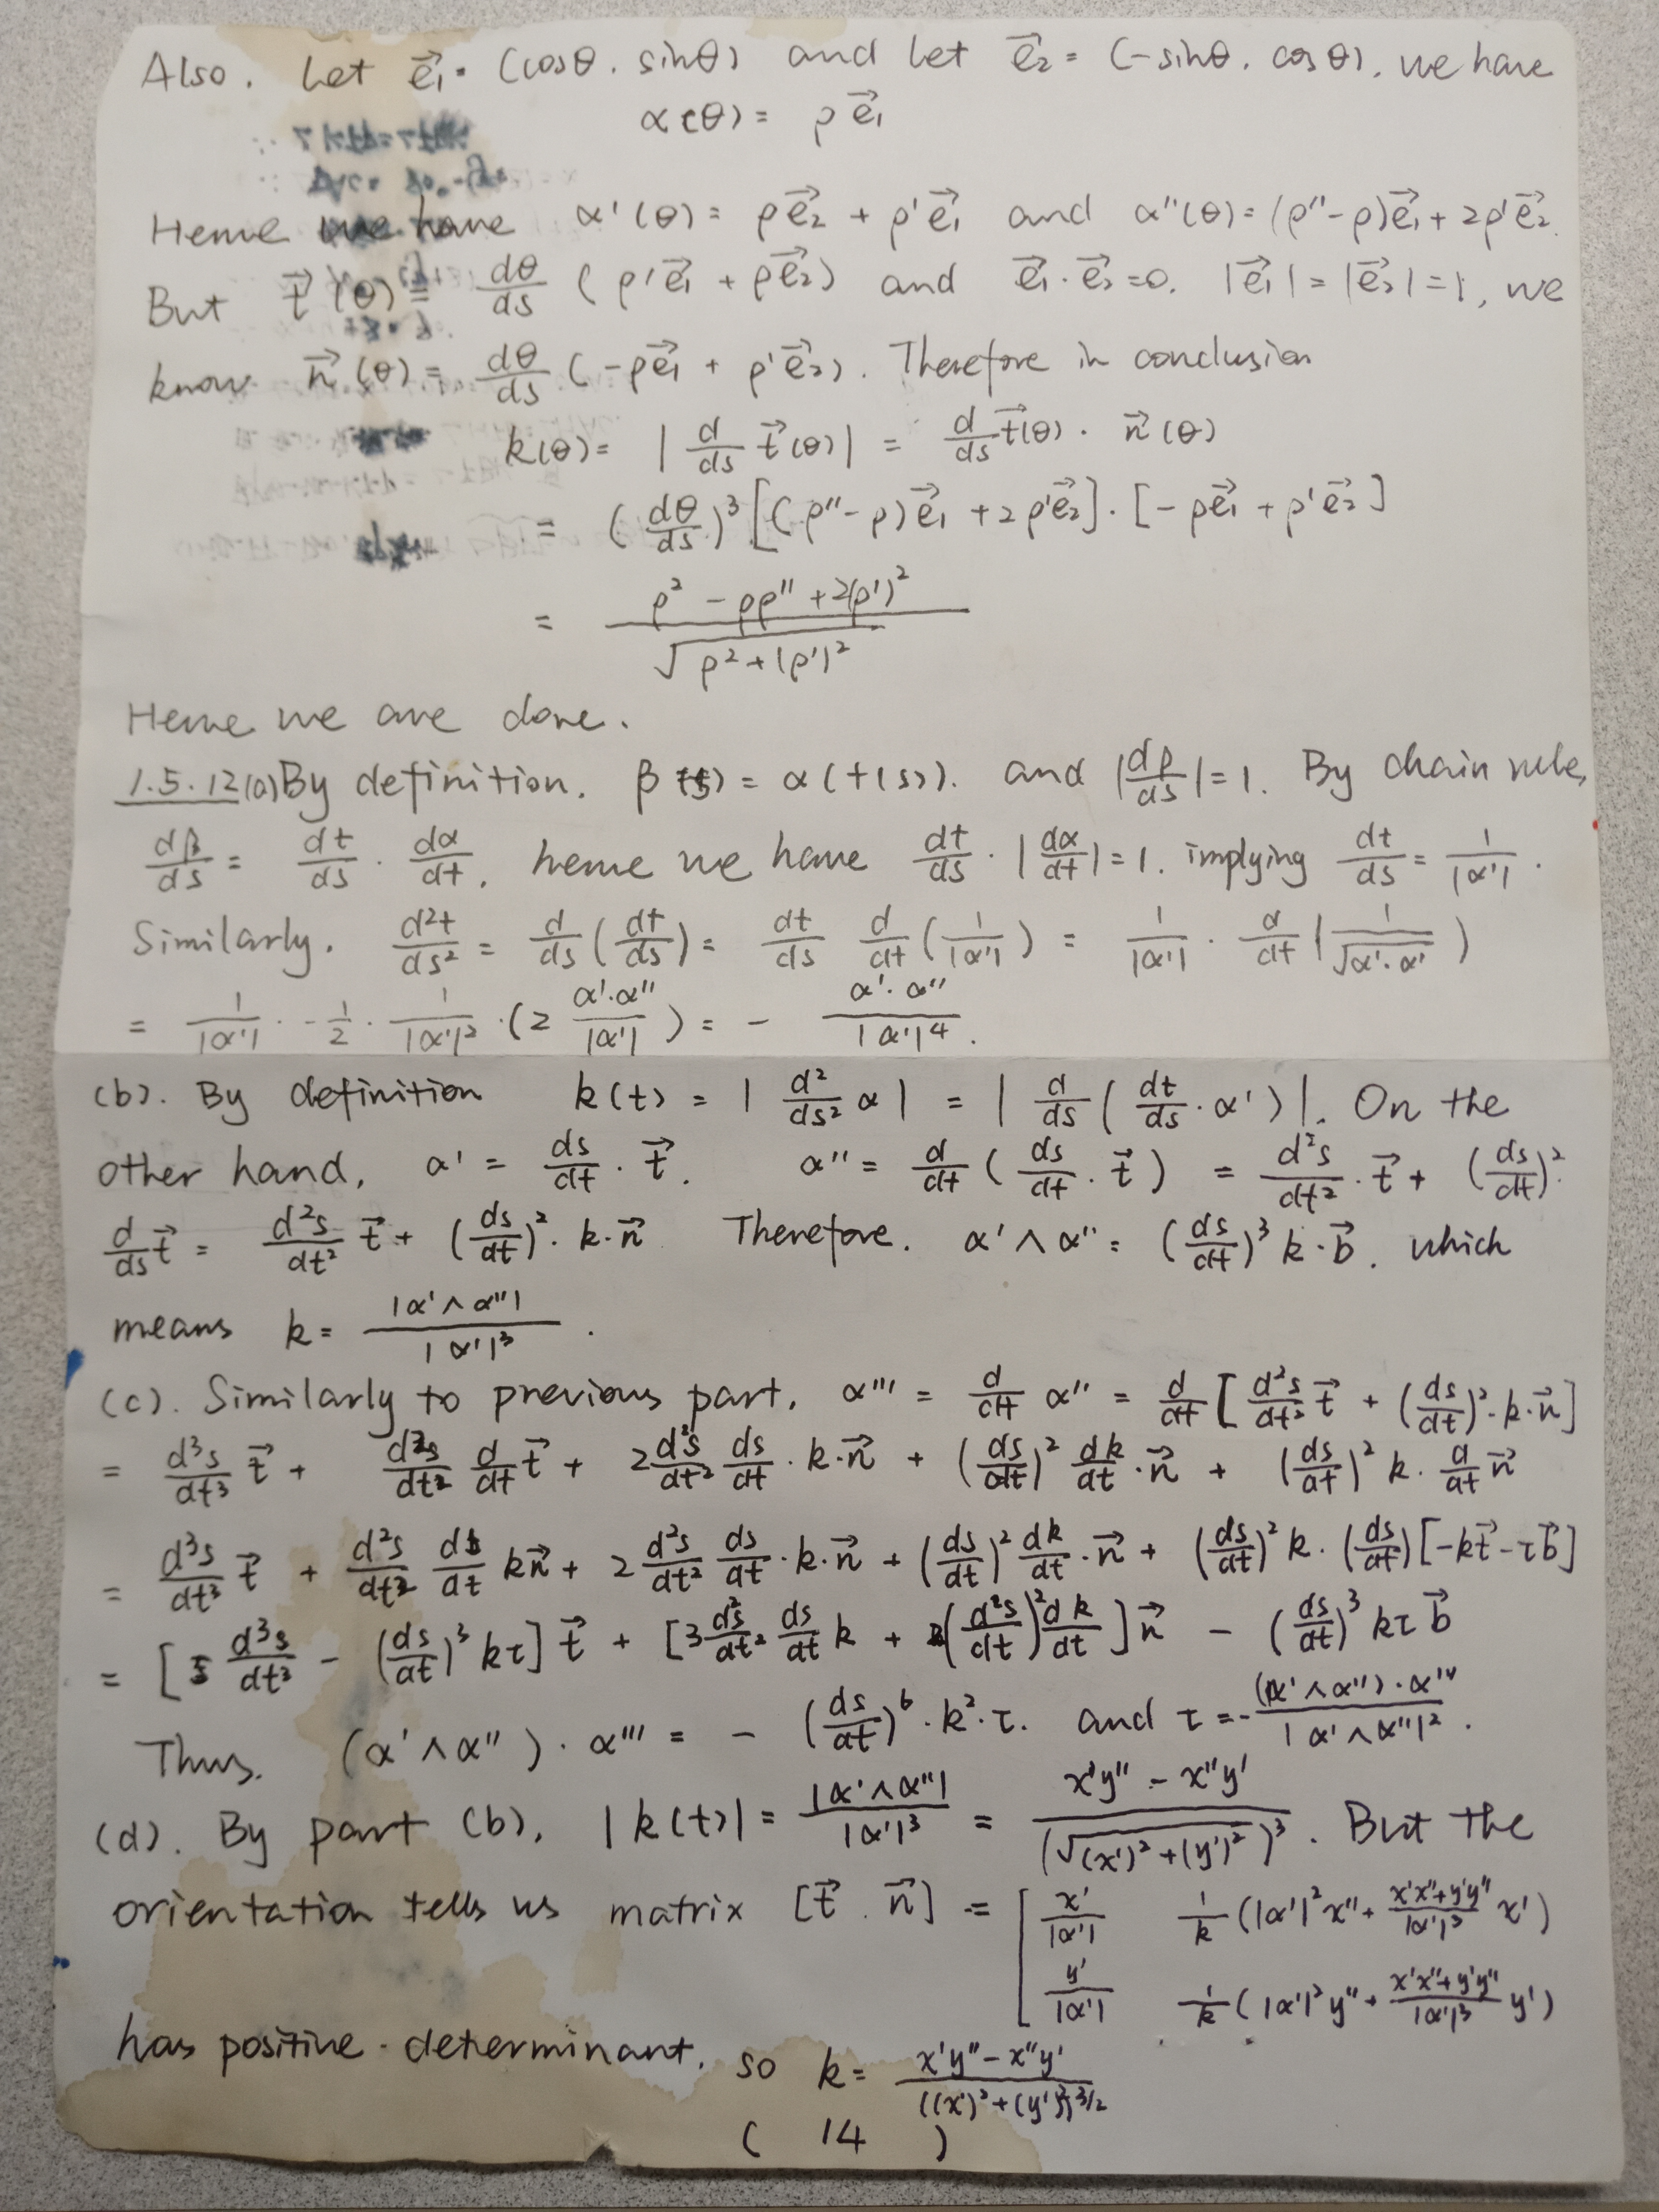 Also. Let e⃗₁ = (cosθ. sinθ) and let e⃗₂ = (-sinθ. cosθ). we have
α(θ) = ρe⃗₁
Hence we have α'(θ) = ρe⃗₂ + ρ'e⃗₁ and α''(θ) = (ρ''-ρ)e⃗₁ + 2ρ'e⃗₂.
But t⃗(θ) = dθ/ds (ρ'e⃗₁ + ρe⃗₂) and e⃗₁·e⃗₂=0. |e⃗₁| = |e⃗₂| = 1, we
know n⃗(θ) = dθ/ds (-ρe⃗₁ + ρ'e⃗₂). Therefore in conclusion
k(θ) = | d/ds t⃗(θ) | = d/ds t⃗(θ) · n⃗(θ)
= (dθ/ds)³ [(ρ''-ρ)e⃗₁ + 2ρ'e⃗₂] · [-ρe⃗₁ + ρ'e⃗₂]
= (ρ² - ρρ'' + 2(ρ')²) / √(ρ² + (ρ')²)
Hence we are done.
1.5.12(a) By definition. β(s) = α(t(s)). and |dβ/ds| = 1. By chain rule,
dβ/ds = dt/ds · dα/dt. hence we have dt/ds · |dα/dt| = 1. implying dt/ds = 1/|α'|.
Similarly. d²t/ds² = d/ds (dt/ds) = dt/ds d/dt (1/|α'|) = 1/|α'| · d/dt (1/√(α'·α'))
= 1/|α'| · -1/2 · 1/|α'|² · (2 α'·α''/|α'|) = - α'·α''/|α'|⁴.
(b). By definition k(t) = | d²/ds² α | = | d/ds (dt/ds · α') |. On the
other hand, α' = ds/dt · t⃗. α'' = d/dt (ds/dt · t⃗) = d²s/dt² · t⃗ + (ds/dt)² ·
d/ds t⃗ = d²s/dt² t⃗ + (ds/dt)² · k·n⃗ Therefore. α' ∧ α'' = (ds/dt)³ k·b⃗. which
means k = |α' ∧ α''| / |α'|³.
(c). Similarly to previous part, α''' = d/dt α'' = d/dt [d²s/dt² t⃗ + (ds/dt)² · k·n⃗]
= d³s/dt³ t⃗ + d²s/dt² d/dt t⃗ + 2 d²s/dt² ds/dt · k·n⃗ + (ds/dt)² dk/dt · n⃗ + (ds/dt)² k · d/dt n⃗
= d³s/dt³ t⃗ + d²s/dt² ds/dt kn⃗ + 2 d²s/dt² ds/dt · k·n⃗ + (ds/dt)² dk/dt · n⃗ + (ds/dt)² k · (ds/dt) [-kt⃗ - τb⃗]
= [d³s/dt³ - (ds/dt)³ kτ] t⃗ + [3 d²s/dt² ds/dt k + (d²s/dt)² dk/dt] n⃗ - (ds/dt)³ kτ b⃗
Thus. (α' ∧ α'') · α''' = - (ds/dt)⁶ · k² · τ. and τ = - (α' ∧ α'') · α''' / |α' ∧ α''|².
(d). By part (b), |k(t)| = |α' ∧ α''| / |α'|³ = (x'y'' - x''y') / (√((x')² + (y')²))³. But the
orientation tells us matrix [t⃗. n⃗] = [x'/|α'| 1/k (|α'|² x'' + (x'x''+y'y'')/|α'|³ x')
y'/|α'| 1/k (|α'|² y'' + (x'x''+y'y'')/|α'|³ y')
has positive determinant. so k = (x'y'' - x''y') / ((x')² + (y')²)^3/2
( 14 )